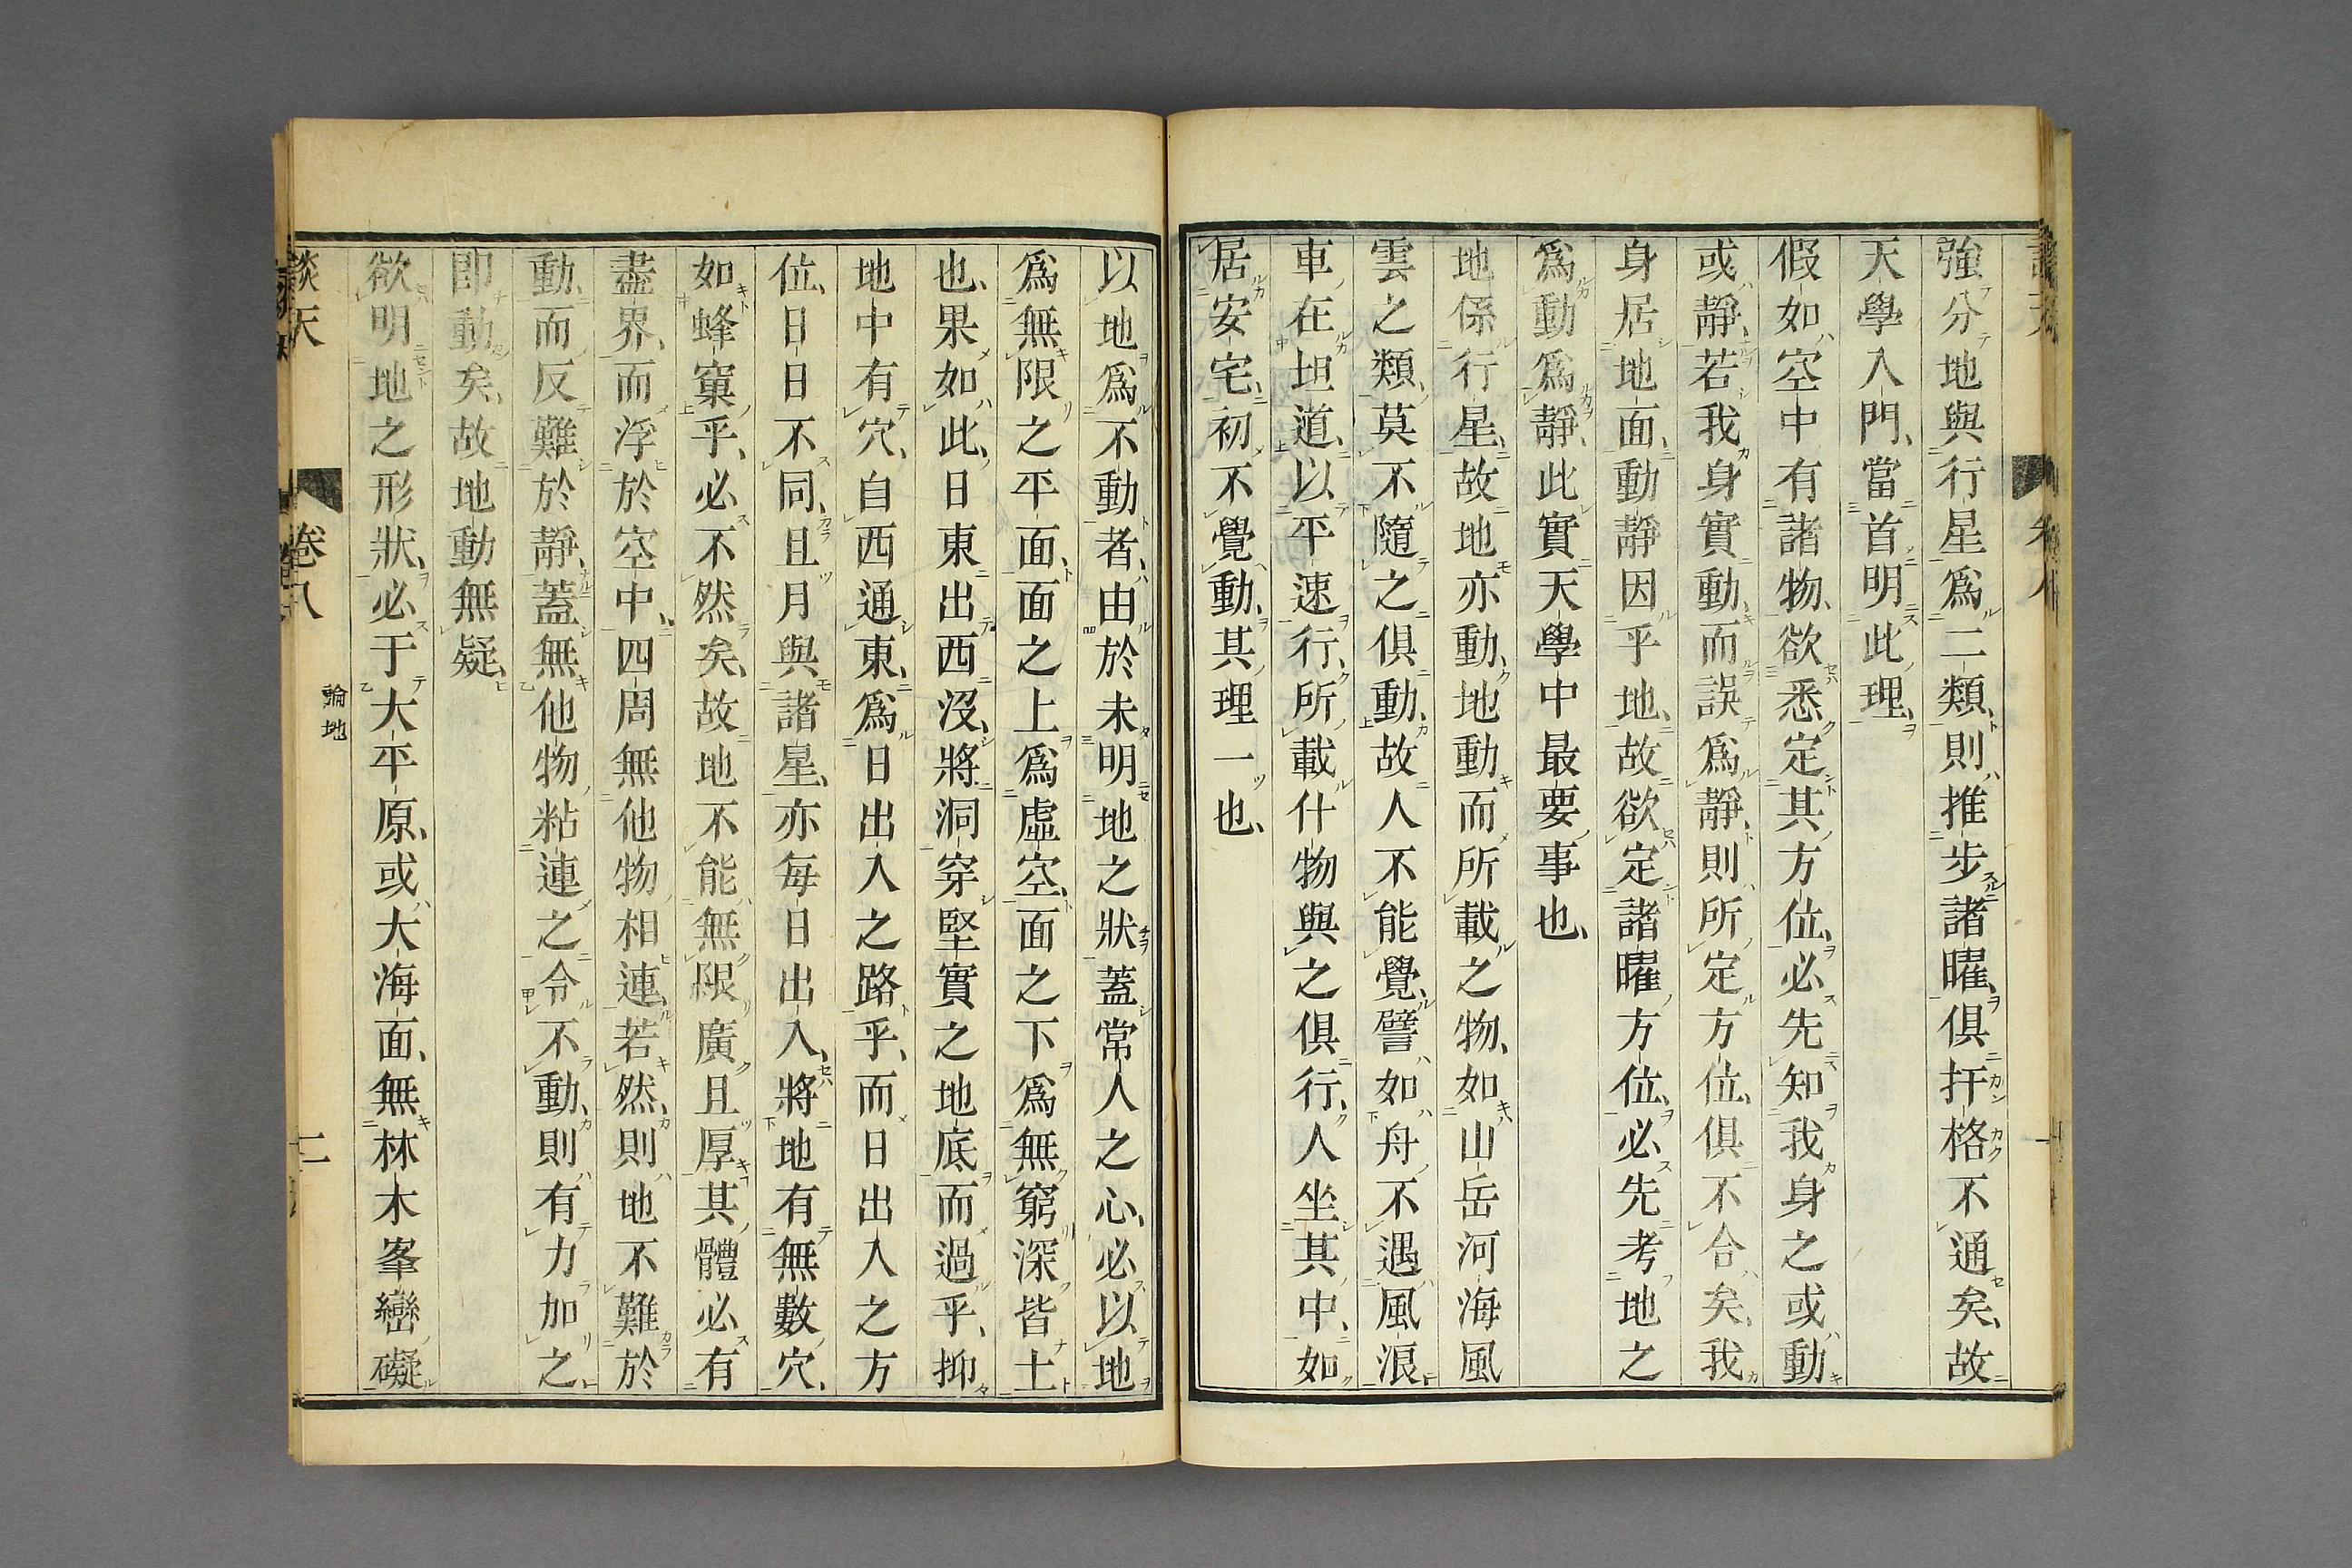 強分地與行星爲二類、則推步諸曜、俱扞格不通矣、故
天學入門、當首明此理、
假如空中有諸物、欲悉定其方位、必先知我身之或動
或靜、若我身實動、而誤爲靜、則所定方位、俱不合矣、我
身居地面、動靜因乎地、故欲定諸曜方位、必先考地之
爲動爲靜、此實天學中最要事也、
地係行星、故地亦動、地動而所載之物、如山岳河海風
雲之類、莫不隨之俱動、故人不能覺、譬如舟不遇風浪
車在坦道、以平速行、所載什物與之俱行、人坐其中、如
居安宅、初不覺動、其理一也、
以地爲不動者、由於未明地之狀、蓋常人之心、必以地
爲無限之平面、面之上爲虛空、面之下爲無窮深皆土
也、果如此、日東出西沒、將洞穿堅實之地底而過乎、抑
地中有穴、自西通東、爲日出入之路乎、而日出入之方
位、日日不同、且月與諸星、亦每日出入、將地有無數穴、
如蜂窠乎、必不然矣、故地不能無限廣且厚其體必有
盡界、而浮於空中、四周無他物相連、若然、則地不難於
動、而反難於靜、蓋無他物粘連之、令不動、則有力加之
即動矣、故地動無疑、
欲明地之形狀、必于大平原、或大海面、無林木峯巒礙
談天
卷八
論地
二